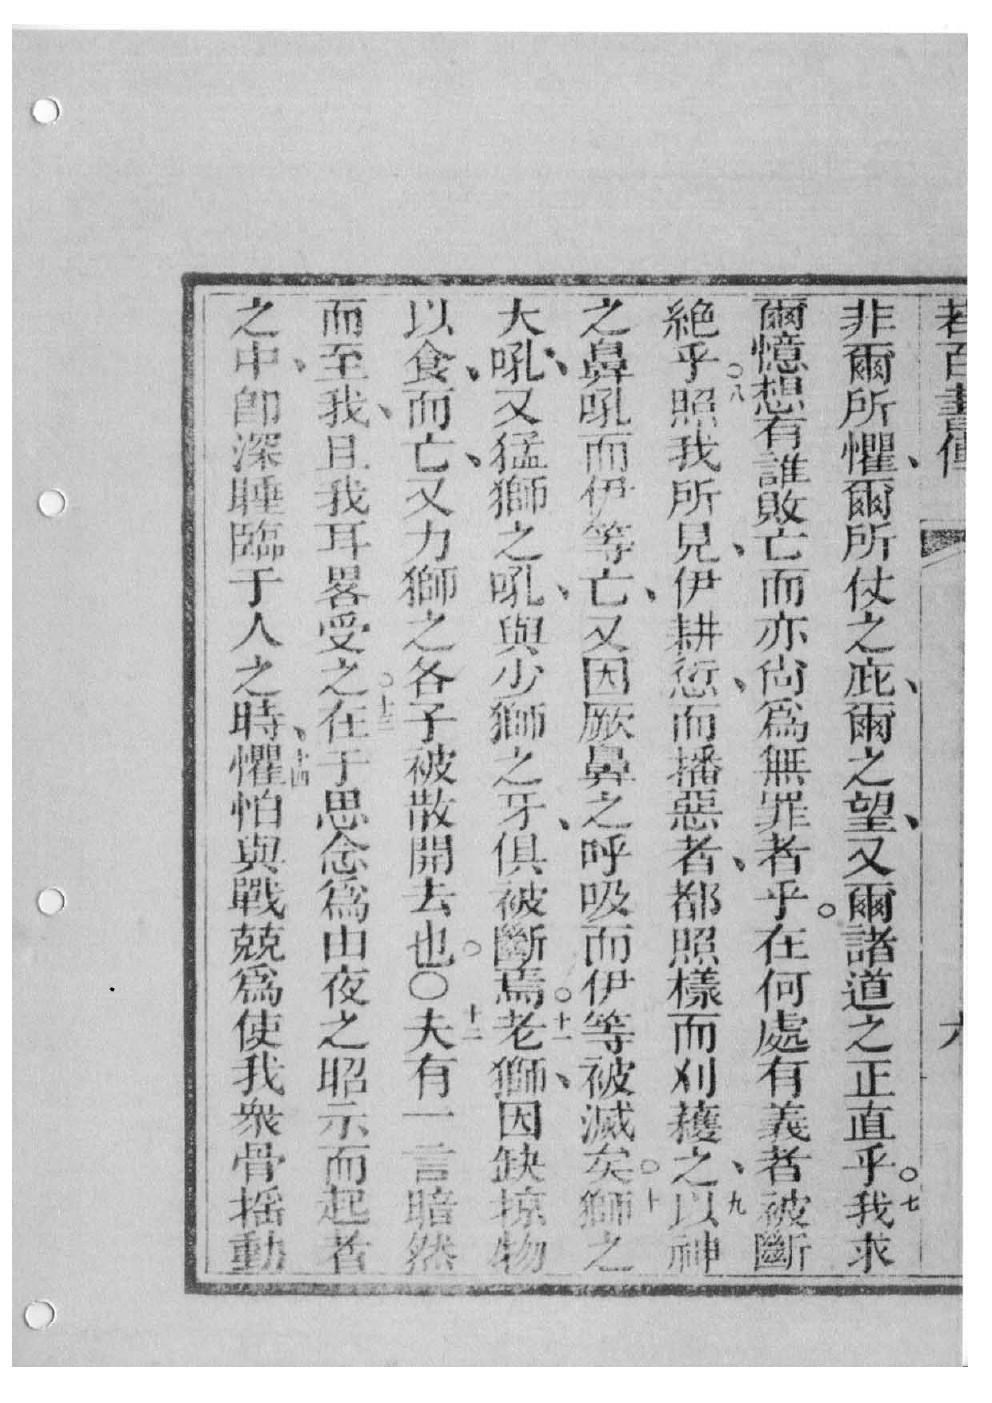 若百書傳 六
非爾所懼、爾所仗之庇、爾之望、又爾諸道之正直乎。七我求
爾憶想有誰敗亡而亦尚為無罪者乎。在何處有義者被斷
絶乎。八照我所見、伊耕愆、而播惡者、都照樣而刈穫之、九以神
之鼻吼而伊等亡、又因厥鼻之呼吸而伊等被滅矣。十獅之
大、吼、又猛獅之吼、與少獅之牙、俱被斷焉。十一老獅、因缺掠物
以食、而亡、又力獅之各子被散開去也。〇十二夫有一言暗然
而至我、且我耳畧受之。十三在于思念為由夜之昭示而起者
之中、卽深睡臨于人之時、十四懼怕與戰兢為使我衆骨搖動